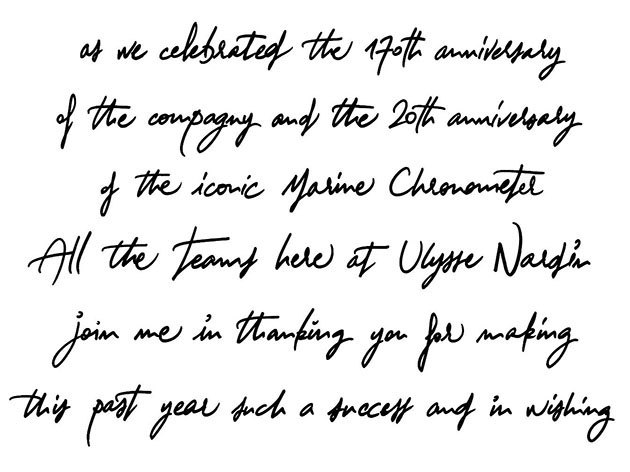 as we celebrated the 170th anniversary
of the compagny and the 20th anniversary
of the iconic Marine Chronometer
All the teams here at Ulysse Nardin
join me in thanking you for making
this past year such a success and in wishing